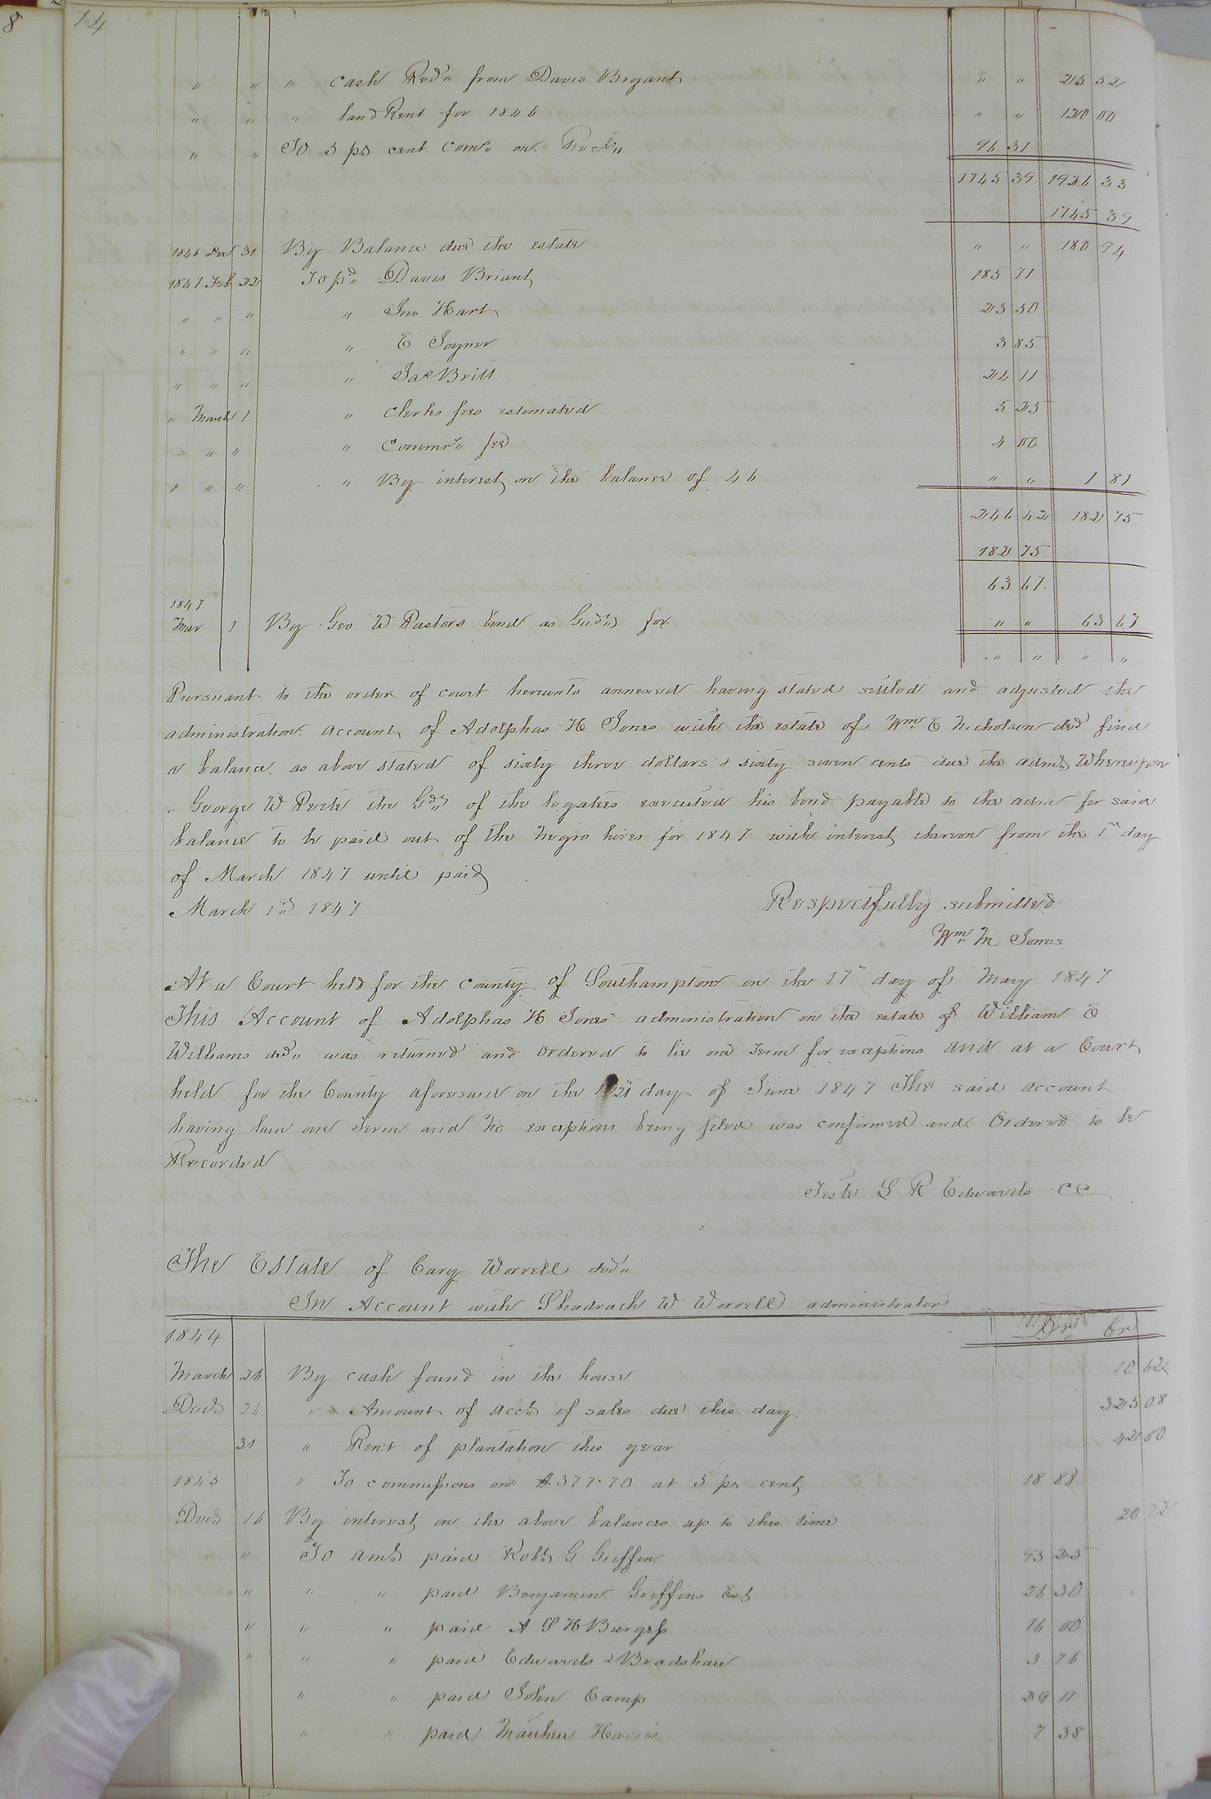 8
14
" " " cash Recd" from Davis Bryant " " 25 52
" " " land Rent for 1846 " " 120 00
" " To 5 pr cent Com" on Rects 96 31
1745 39 1926 33
1745 39
1846 Dec 31 By Balance due the estate " " 180 94
1847 Feb 22 To pd Davis Briant 183 71
" " " " Jno Hart 23 50
" " " " E Joyner 3 85
" " " " Jas Britt 21 11
" March 1 " Clerks fees estimated 5 25
" " " " Commrs" fee 4 00
" " " " By interest on the balance of 46 " " 1 81
246 42 182 75
182 75
63 67
1847
Mar 1 By Geo W Pastors bond as Gudn for " " 63 67
" " " "
Pursuant to the order of court hereunto annexed having stated settled and adjusted the
administration account of Adolphas H Jones with the estate of Wm E Nicholson decd find
a balance as above stated of sixty three dollars & sixty seven cents due the admr Whereupon
George W the Gdn of the legatees executed his bond payable to the admr for said
balance to be paid out of the Negro hires for 1847 with interest thereon from the 1st day
of March 1847 until paid
March 1st 1847 Respectfully submitted
Wm M Jones
At a Court held for the county of Southampton on the 17" day of May 1847
This Account of Adolphas H Jones administration on the estate of William E
Williams decd" was returned and Ordered to lie one Term for exceptions and at a Court
held for the County aforesaid on the 21 day of June 1847 The said account
having lain one Term and No exceptions being filed was confirmed and Ordered to be
Recorded
Teste L R Edwards CC
The Estate of Cary Worrell decd"
In Account with Shadrach W Worrell administrator
1844 Dr Cr
March 26 By cash found in the house 10 62
Decr 26 " Amount of acct of sales due this day 325 08
31 " Rent of plantation this year 42 00
1845 " To commissions on $377.70 at 5 pr cent 18 88
Decr 16 By interest on the above balances up to this time 20 72
" To amt paid Robt G Griffin 93 25
" " " paid Benjamin Griffins Est 26 30
" " " paid A S H Burgess 16 00
" " " paid Edwards & Bradshaw 3 76
" " paid John Camp 29 11
" " paid Mathew Harris 7 38